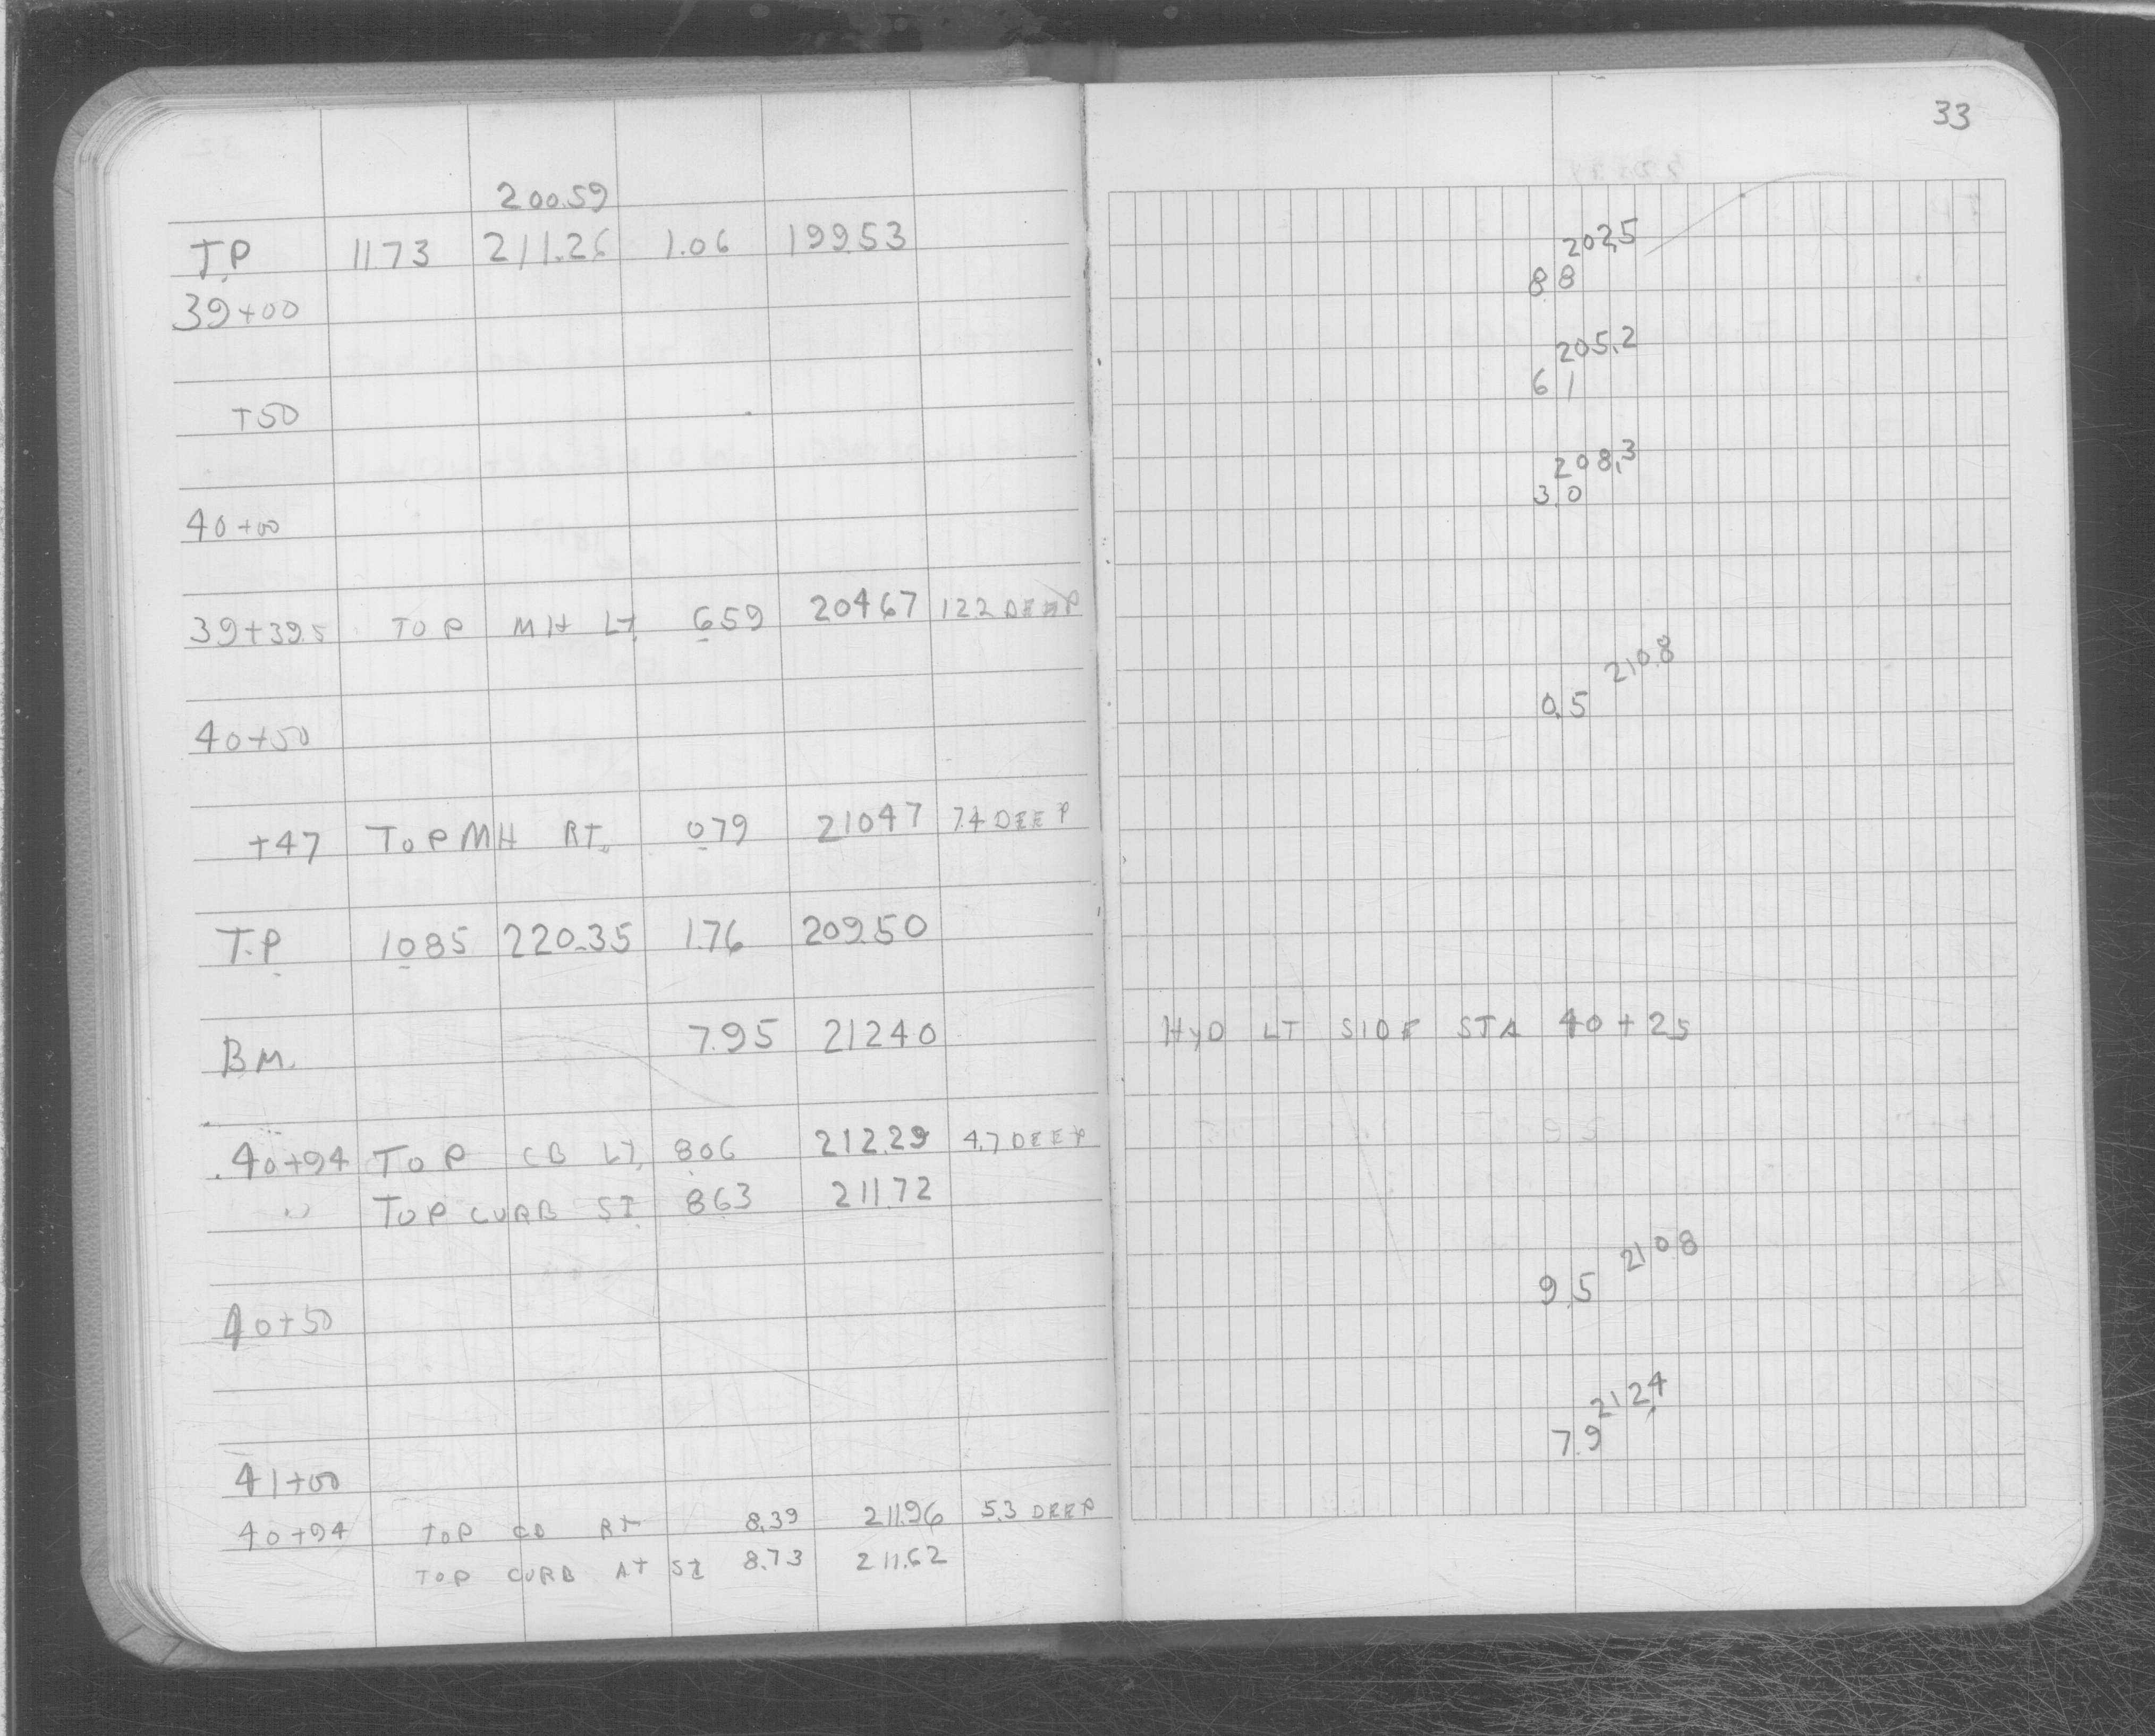 200.59
T.P 11.73 211.26 1.06 199.53
39+00
+50
40+00
39+39.5 TOP MH LT. 6.59 204.67 12.2 DEEP
40+50
+47 TOP MH RT. 0.79 210.47 7.4 DEEP
T.P 10.85 220.35 1.76 209.50
B M. 7.95 212.40
40+94 TOP CB LT. 8.06 212.29 4.7 DEEP
" TOP CURB SI 8.63 211.72
40+50
41+00
40+94 TOP CB RT 8.39 211.96 5.3 DEEP
TOP CURB AT SI 8.73 211.62
33
202.5
8.8
205.2
6.1
208.3
3.0
210.8
0.5
HYD LT SIDE STA 40+25
210.8
9.5
212.4
7.9